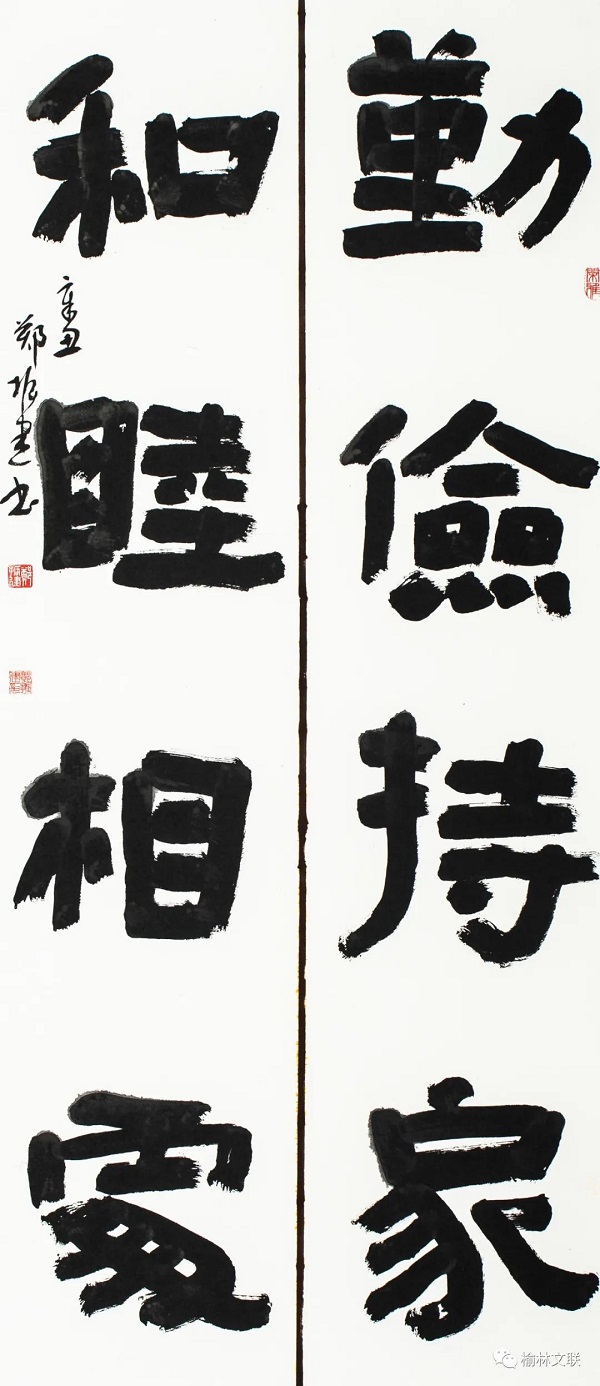 勤儉持家
和睦相處
辛丑
郑建书
榆林文联